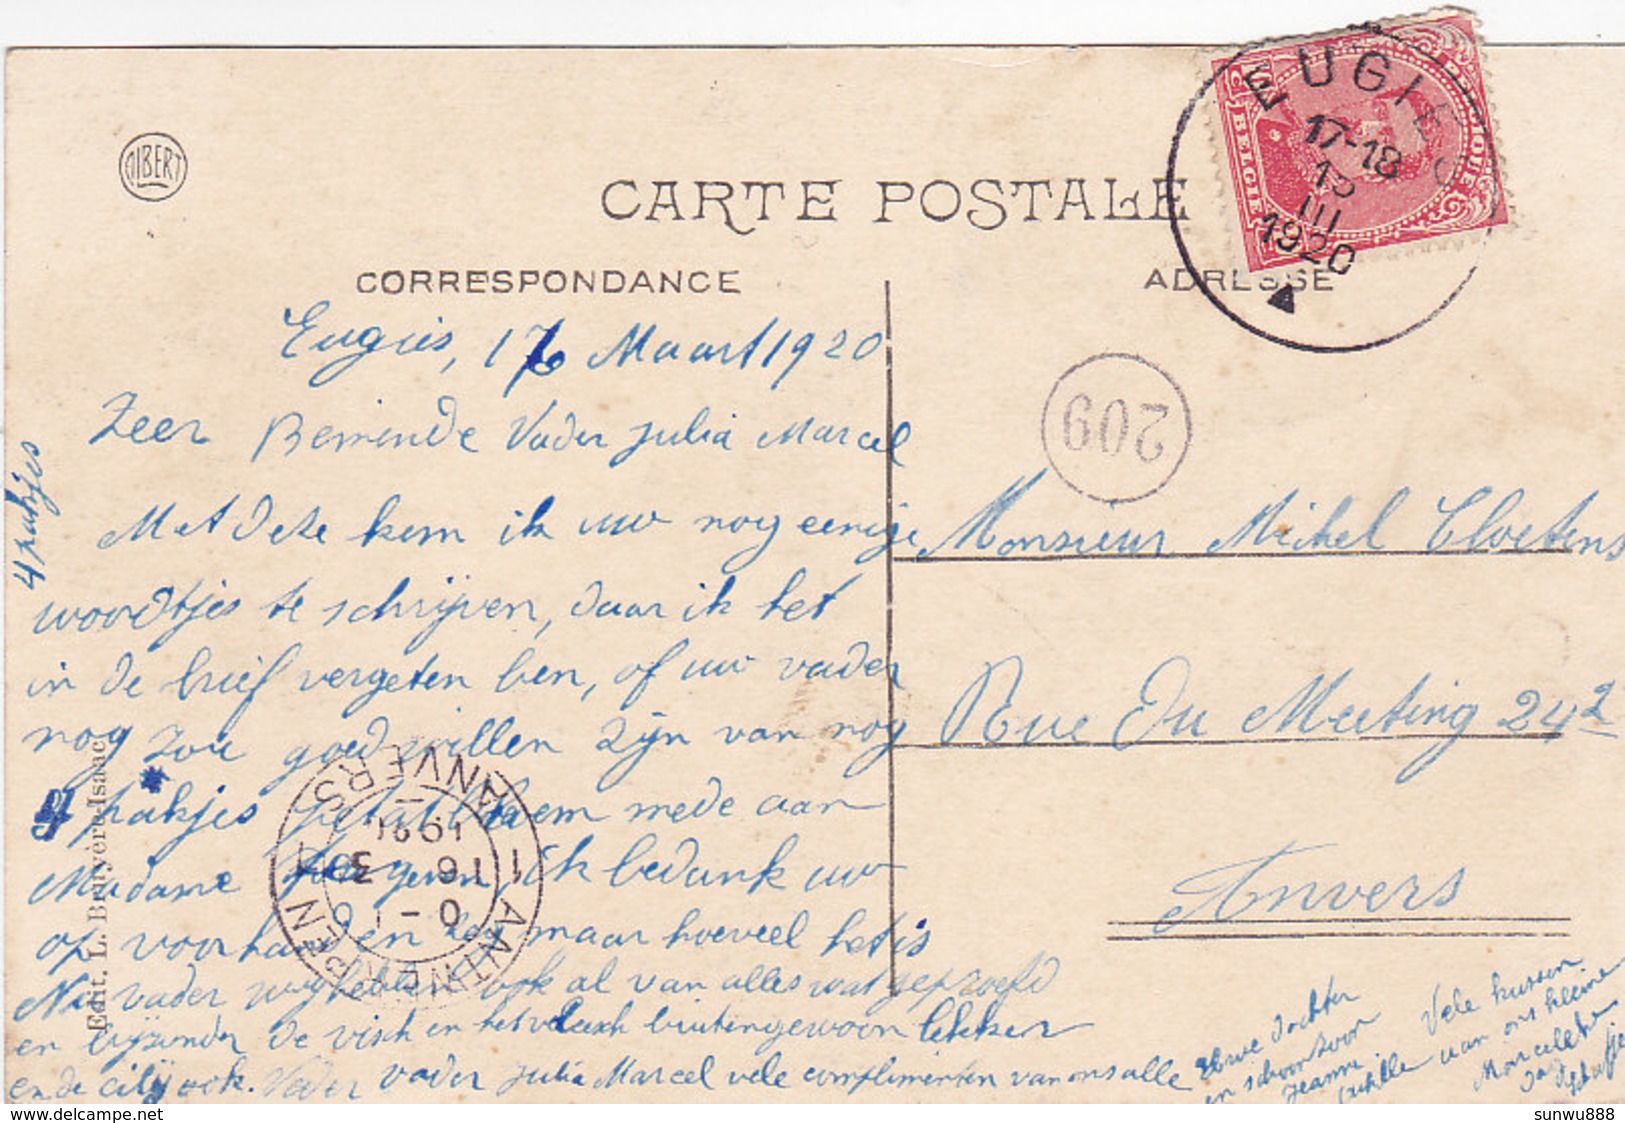 ALBERT
CARTE POSTALE
CORRESPONDANCE
ADRESSE
EUGIES
17-18
III
1920
BELGIE
BELGIQUE
209
Eugies, 16 Maart 1920
Zeer Beminde Vader Julia Marcel
Met deze kom ik uw nog eenige
woordtjes te schrijven, daar ik het
in de brief vergeten ben, of uw vader
nog zou goed willen zijn van nog
4 pakjes mede aan
Madame ik bedank uw
op voorhand en zeg maar hoeveel het is
Nu vader wij hebben ook al van alles wat geproefd
en bijzonder de visch en het vleesch buitengewoon lekker
en de ook. Vader vader Julia Marcel vele complimenten van ons alle
4 pakjes
Edit. L. Bruyère-Isaac
1 ANTWERPEN 1
ANVERS
16 3
Monsieur Michel Cloetens
Rue Du Meeting 24²
Anvers
Uwe dochter
en schoonzoon
Jeanne
Achille
Vele kussen
van ons kleine
sunwu888